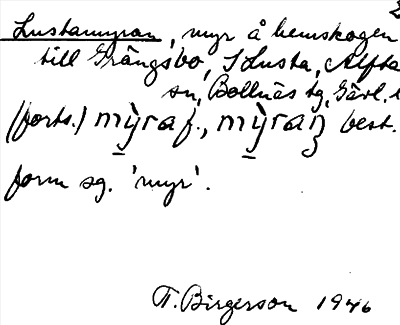 2
Lustamyran, myr å hemskogen
till Grängsbo, S Lusta, Alfta
sn, Bollnäs tg, Gävl. l
(forts.) mỳra f., mỳraṇ best.
form sg. 'myr'.
T. Birgerson 1946